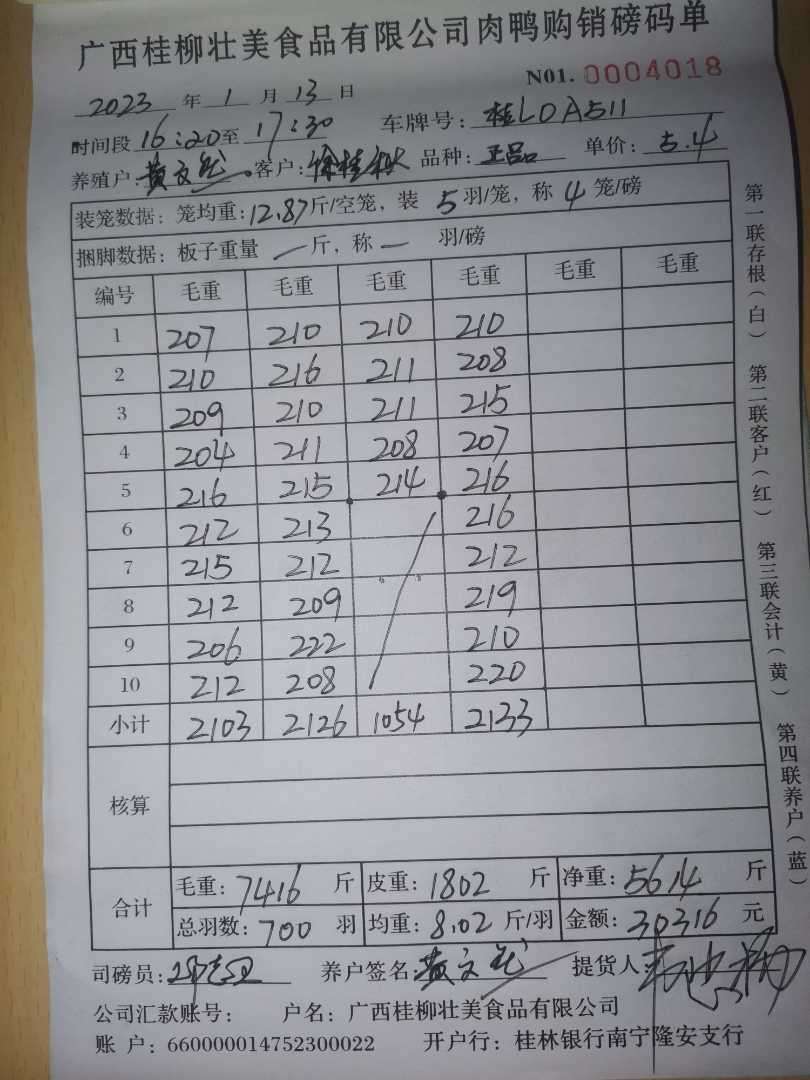 广西桂柳壮美食品有限公司肉鸭购销磅码单
N01. 0004018
2023 年 1 月 13 日
时间段 16:20 至 17:30 车牌号: 桂LOA511
养殖户: 黄文 客户: 徐桂秋 品种: 正品 单价: 5.4
装笼数据: 笼均重: 12.87 斤/空笼, 装 5 羽/笼, 称 4 笼/磅
捆脚数据: 板子重量 一 斤, 称 一 羽/磅
编号 毛重 毛重 毛重 毛重 毛重 毛重
1 207 210 210 210
2 210 216 211 208
3 209 210 211 215
4 204 211 208 207
5 216 215 214 216
6 212 213 216
7 215 212 212
8 212 209 219
9 206 222 210
10 212 208 220
小计 2103 2126 1054 2133
核算
合计 毛重: 7416 斤 皮重: 1802 斤 净重: 5614 斤
总羽数: 700 羽 均重: 8.02 斤/羽 金额: 30316 元
司磅员: 养户签名: 黄文 提货人:
公司汇款账号: 户名: 广西桂柳壮美食品有限公司
账 户: 660000014752300022 开户行: 桂林银行南宁隆安支行
第一联存根(白) 第二联客户(红) 第三联会计(黄) 第四联养户(蓝)